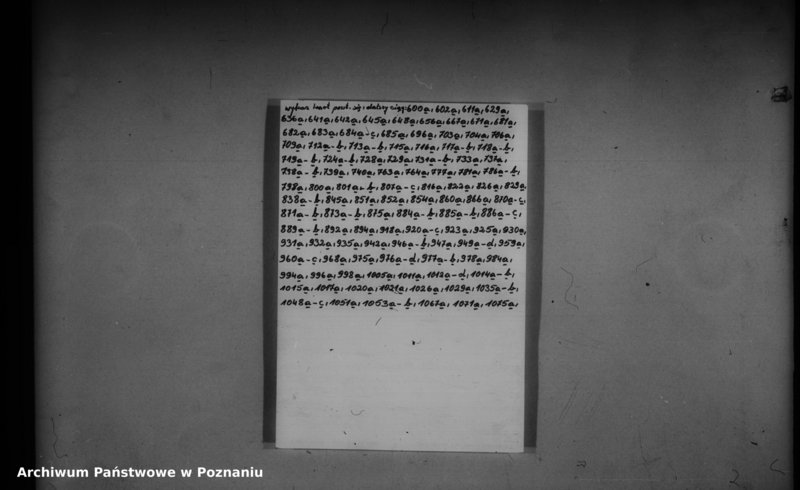 wykaz kart powt. się; dalszy ciąg: 600a, 602a, 611a, 629a,
636a, 641a, 642a, 645a, 648a, 656a, 667a, 671a, 681a,
682a, 683a, 684a-c, 685a, 696a, 703a, 704a, 706a,
709a, 712a-b, 713a-b, 715a, 716a, 717a-b, 718a-b,
719a-b, 724a-b, 728a, 729a, 731a-b, 733a, 737a,
738a-b, 739a, 740a, 763a, 764a, 777a, 781a, 786a-b,
798a, 800a, 801a-b, 807a-c, 816a, 822a, 826a, 829a,
838a-b, 845a, 851a, 852a, 854a, 860a, 866a, 870a-c,
871a-b, 873a-b, 875a, 884a-b, 885a-b, 886a-c,
889a-b, 892a, 894a, 918a, 920a-c, 923a, 925a, 930a,
931a, 932a, 935a, 942a, 946a-b, 947a, 949a-d, 959a,
960a-c, 968a, 975a, 976a-d, 977a-b, 978a, 984a,
994a, 996a, 998a, 1005a, 1011a, 1012a-d, 1014a-b,
1015a, 1017a, 1020a, 1021a, 1026a, 1029a, 1035a-b,
1048a-c, 1051a, 1053a-b, 1067a, 1071a, 1075a,
Archiwum Państwowe w Poznaniu